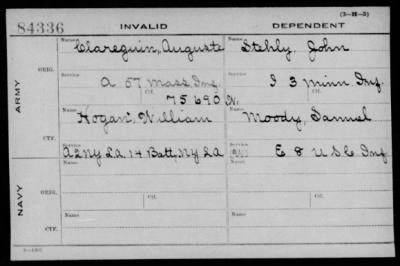 (3-H-5)
84336 INVALID DEPENDENT
Name Clareguin, Auguste Name Stehly, John
ORIG. Service A 57 Mass Inf. Service I 3 Minn Inf.
ARMY Ctf. 75690 Ctf.
Name Hogan, William Name Moody, Samuel
CTF. Service A 2 NY L.A. 14 Batt, NY LA Service E 8 U S C Inf
Name Name
NAVY ORIG. Service Ctf. Service Ctf.
Name Name
CTF. Service Service